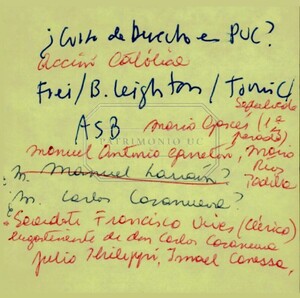 ¿Curso de Derecho en PUC?
Acción Católica
Frei/B. Leighton/Tomic/
ASB Mario Garcés (1a
Manuel Antonio Garretón, Mario
PATRIMONIO UC
Ruz
M. Manuel Larraín?
¿M. Carlos Casanueva?
¿Sacerdote Francisco Vives (Clérico)
de don Carlos Casanueva
Julio Philippi, Ismael Canessa,